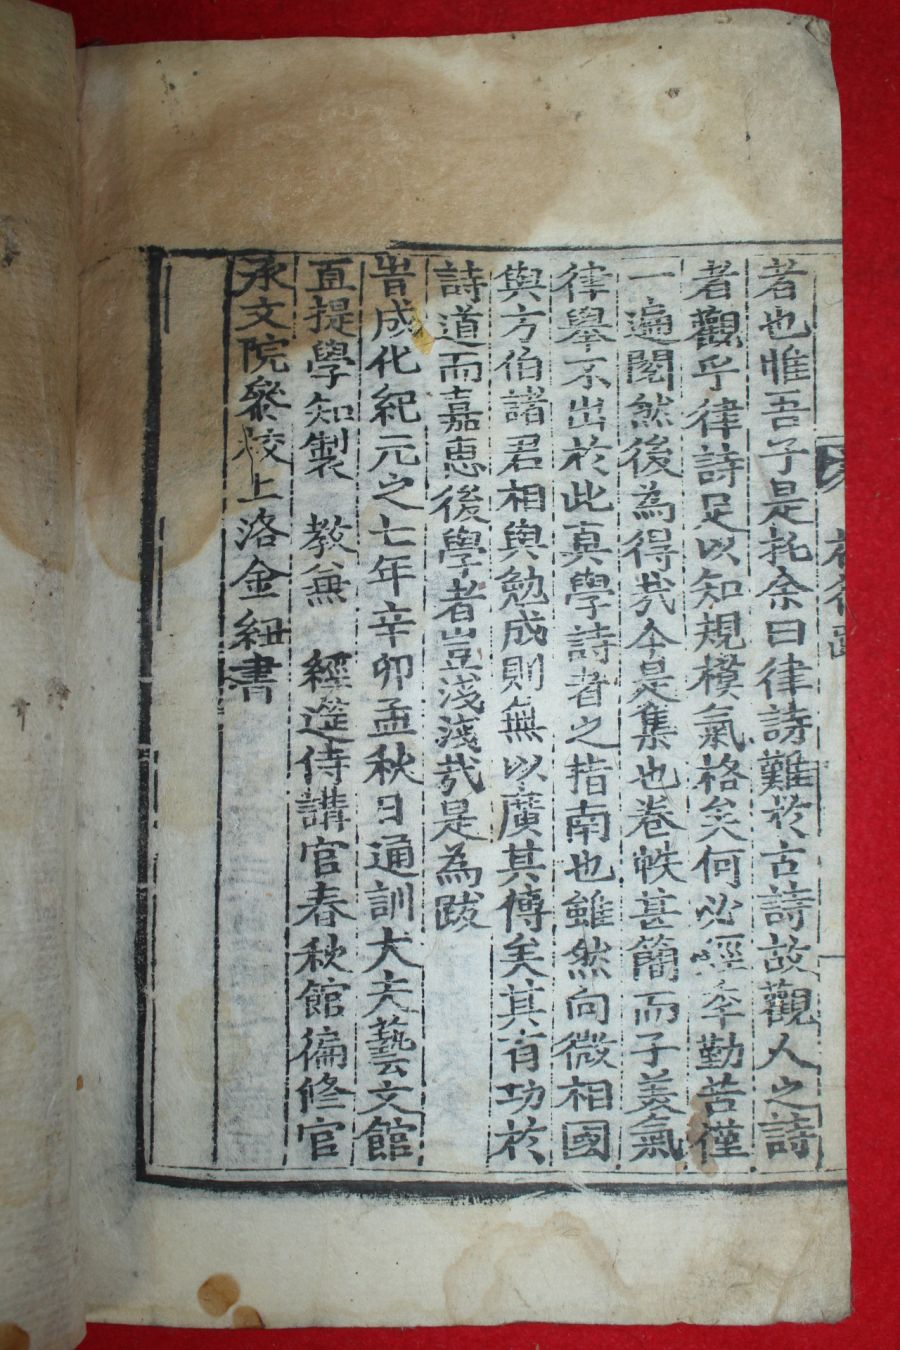 者也惟吾子是托余曰律詩難於古詩故觀人之詩
者觀乎律詩足以知規模氣格矣何必經年勤苦僅
一遍閱然後為得㢤今是集也卷帙甚簡而子美氣
律舉不出於此真學詩者之指南也雖然向微相國
與方伯諸君相與勉成則無以廣其傳矣其有功於
詩道而嘉惠後學者豈淺淺㢤是為跋
旹成化紀元之七年辛卯孟秋日通訓大夫藝文館
直提學知製 教兼 經筵侍講官春秋館編修官
承文院參校上洛金紐書